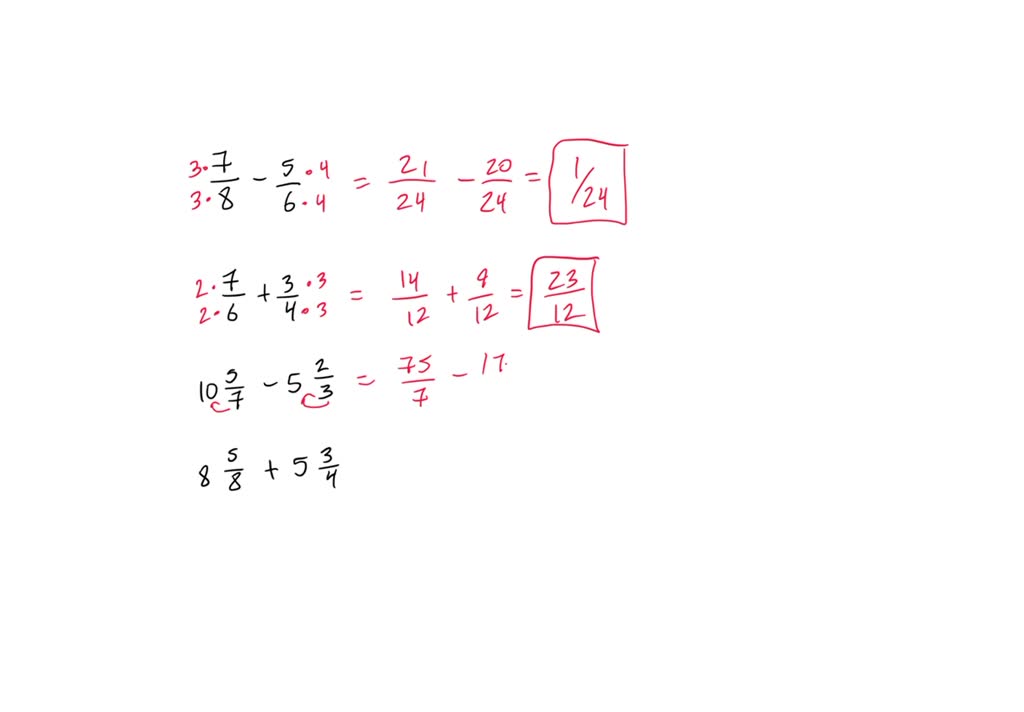 3·7/3·8 − 5·4/6·4 = 21/24 − 20/24 = 1/24
2·7/2·6 + 3·3/4·3 = 14/12 + 9/12 = 23/12
10 5/7 − 5 2/3 = 75/7 − 17
8 5/8 + 5 3/4